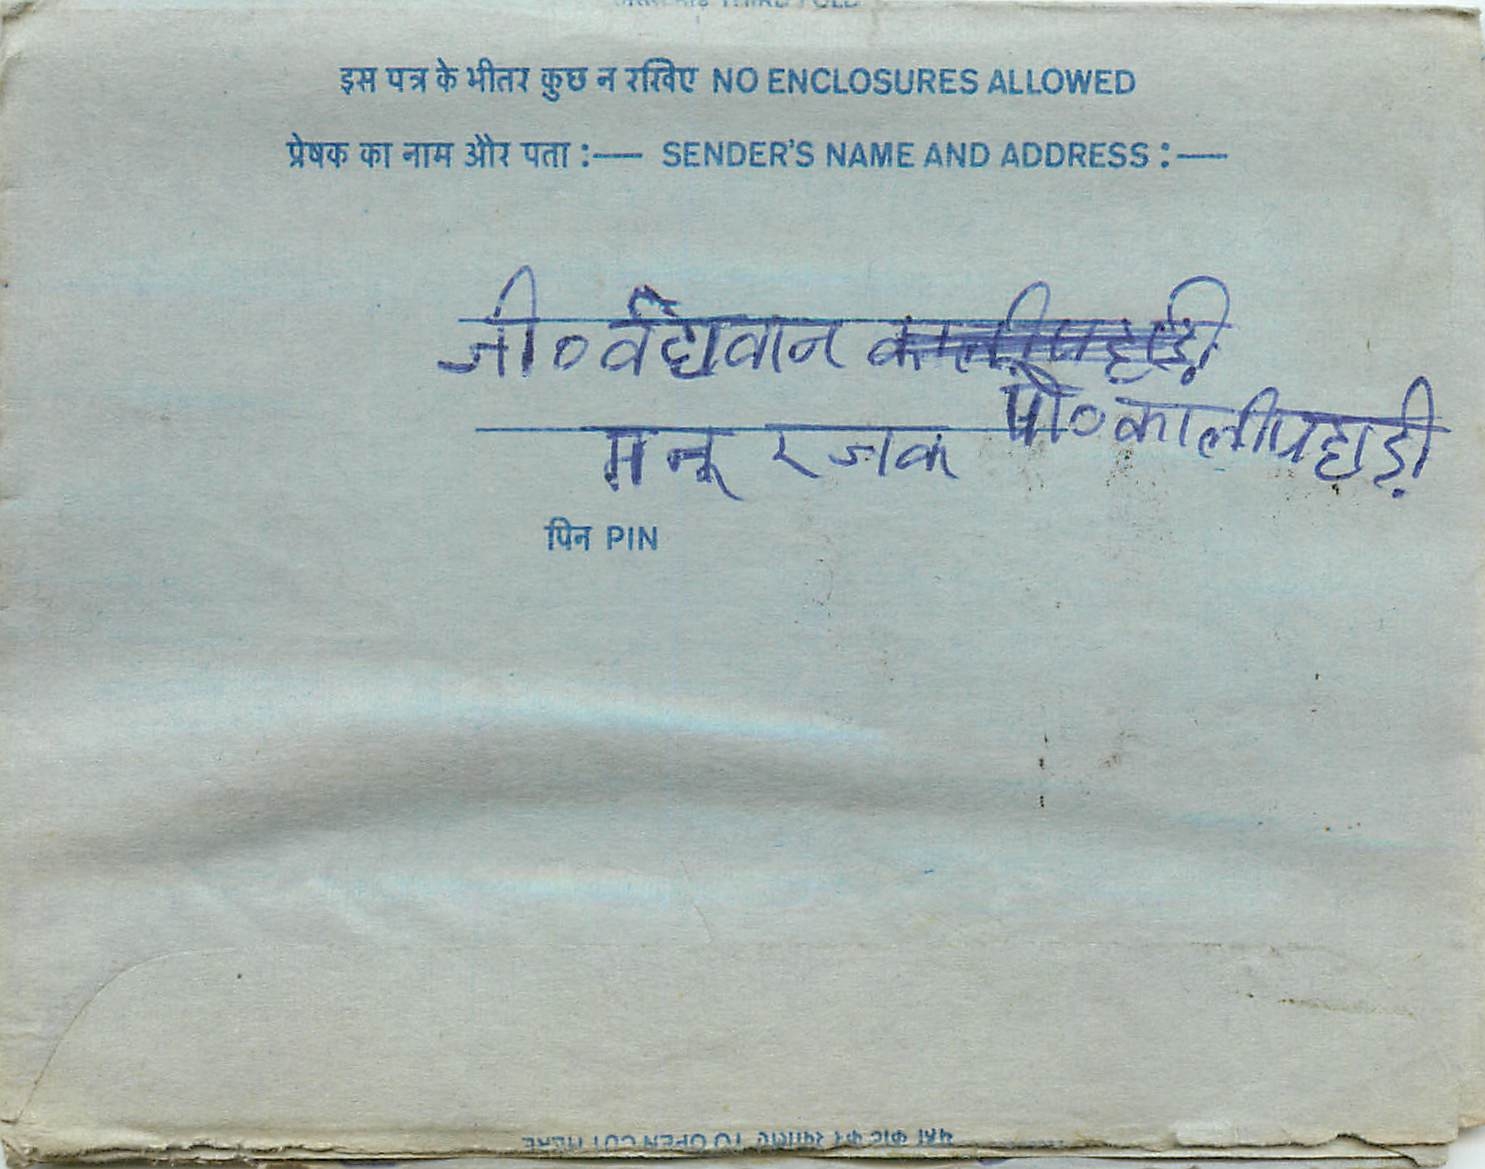 THIRD FOLD
इस पत्र के भीतर कुछ न रखिए NO ENCLOSURES ALLOWED
प्रेषक का नाम और पता :— SENDER'S NAME AND ADDRESS :—
जी० वैद्यवान कालीपहाड़ी
पो० कालीपहाड़ी
मनू रजक
पिन PIN
यहां काट कर खोलिए TO OPEN CUT HERE